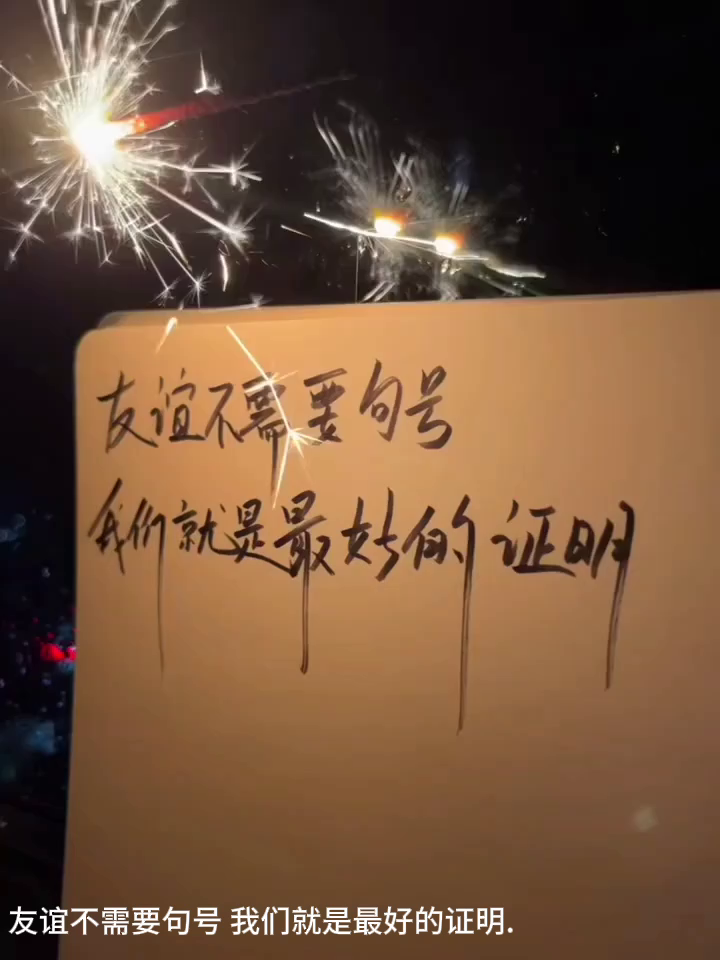 友谊不需要句号
我们就是最好的证明
友谊不需要句号 我们就是最好的证明.